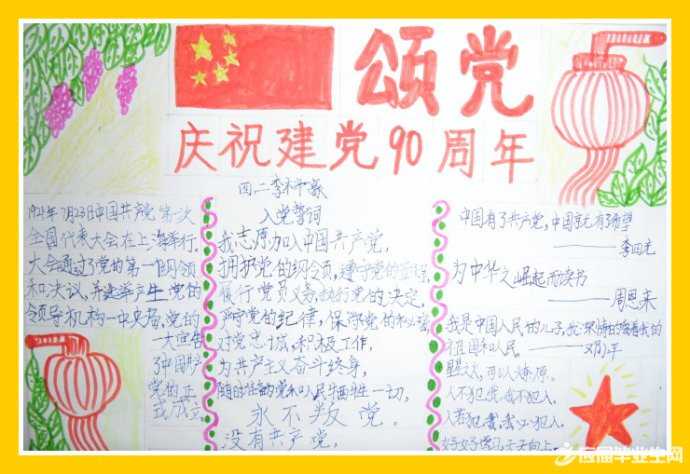 颂党
庆祝建党90周年
四二李
1921年7月23日中国共产党第一次
全国代表大会在上海举行.
大会通过了党的第一个纲领
和决议,并选举产生党的
领导机构—中央局,党的
一大宣告
了中国共产
党的正
式成立
入党誓词
我志愿加入中国共产党,
拥护党的纲领,遵守党的章程,
履行党员义务,执行党的决定,
严守党的纪律,保守党的秘密
对党忠诚,积极工作,
为共产主义奋斗终身,
随时准备为党和人民牺牲一切,
永不叛党。
没有共产党,
中国有了共产党,中国就有了希望
——李四光
为中华之崛起而读书
——周恩来
我是中国人民的儿子,我深情的爱着我的
祖国和人民。——邓小平
星星之火,可以燎原.
人不犯我,我不犯人,
人若犯我,我必犯人.
好好学习,天天向上
应届毕业生网